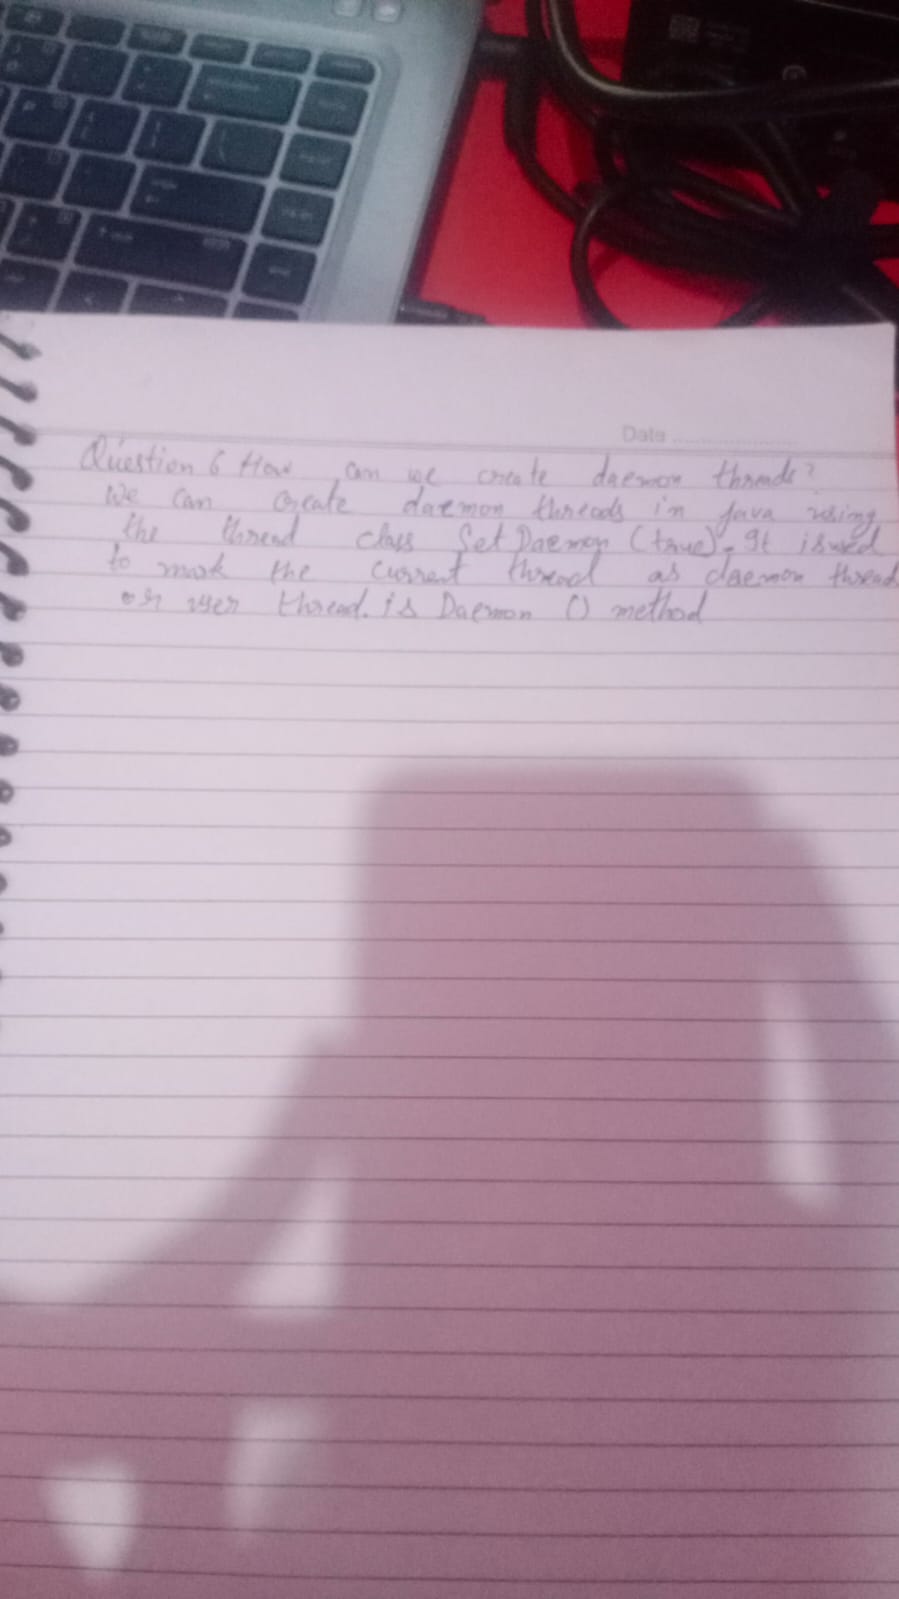 Date
Question 6 How can we create daemon threads?
We can create daemon threads in java using
the thread class Set Daemon (true). It is used
to mark the current thread as daemon thread
or user thread. is Daemon () method